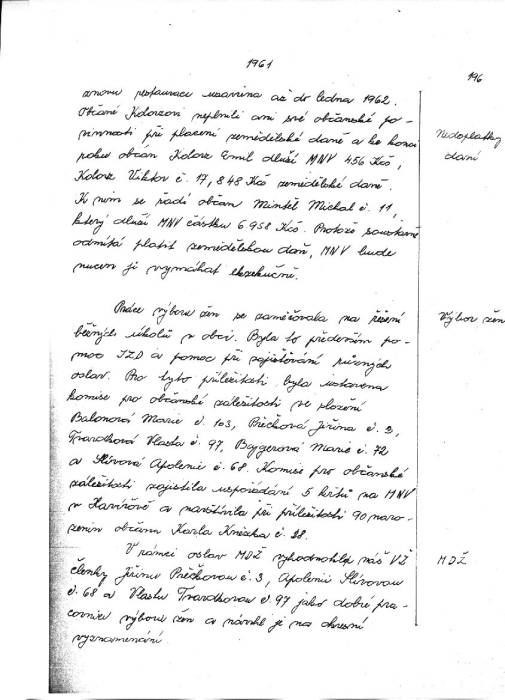 1961
196
znovu restaurace uzavřena až do ledna 1962.
Občané Kolorzovi neplnili ani své občanské po-
vinnosti při placení zemědělské daně a ke konci
Nedoplatky
daní
roku občan Kolorz Emil dluží MNV 456 Kčs,
Kolorz Viktor č. 17, 848 Kčs zemědělské daně.
K nim se řadí občan Mintěl Michal č. 11,
který dluží MNV částku 6.958 Kčs. Protože soustavně
odmítá platit zemědělskou daň, MNV bude
nucen ji vymáhat exekučně.
Práce výboru žen se zaměřovala na řešení
Výbor žen
běžných úkolů v obci. Byla to především po-
moc JZD a pomoc při zajišťování různých
oslav. Pro tyto příležitosti byla ustavena
komise pro občanské záležitosti ve složení
Balonová Marie č. 103, Přečková Jiřina č. 3,
Tvardková Vlasta č. 97, Bojgerová Marie č. 72
a Slívová Apolenie č. 68. Komise pro občanské
záležitosti zajistila uspořádání 5 křtů na MNV
v Havířově a navštívila při příležitosti 90 naro-
zenin občana Karla Kněžka č. 28.
V rámci oslav MDŽ vyhodnotil náš VŽ
MDŽ
členky Jiřinu Přečkovou č. 3, Apolenii Slívovou
č. 68 a Vlastu Tvardkovou č. 97 jako dobré pra-
covnice výboru žen a navrhl je na okresní
vyznamenání.